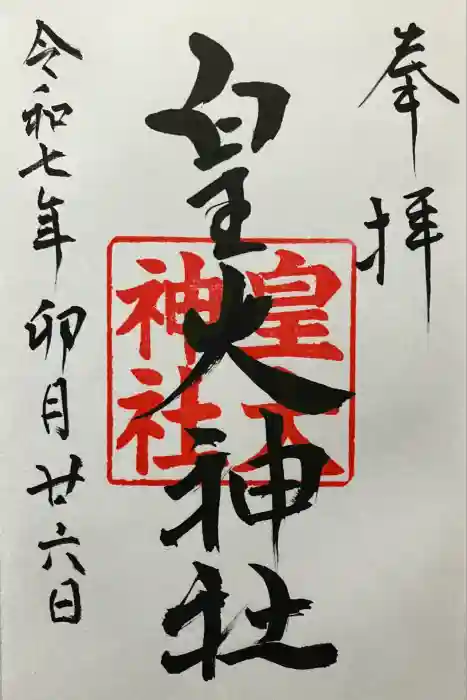 奉拝
皇大神社
皇大
神社
令和七年卯月廿六日